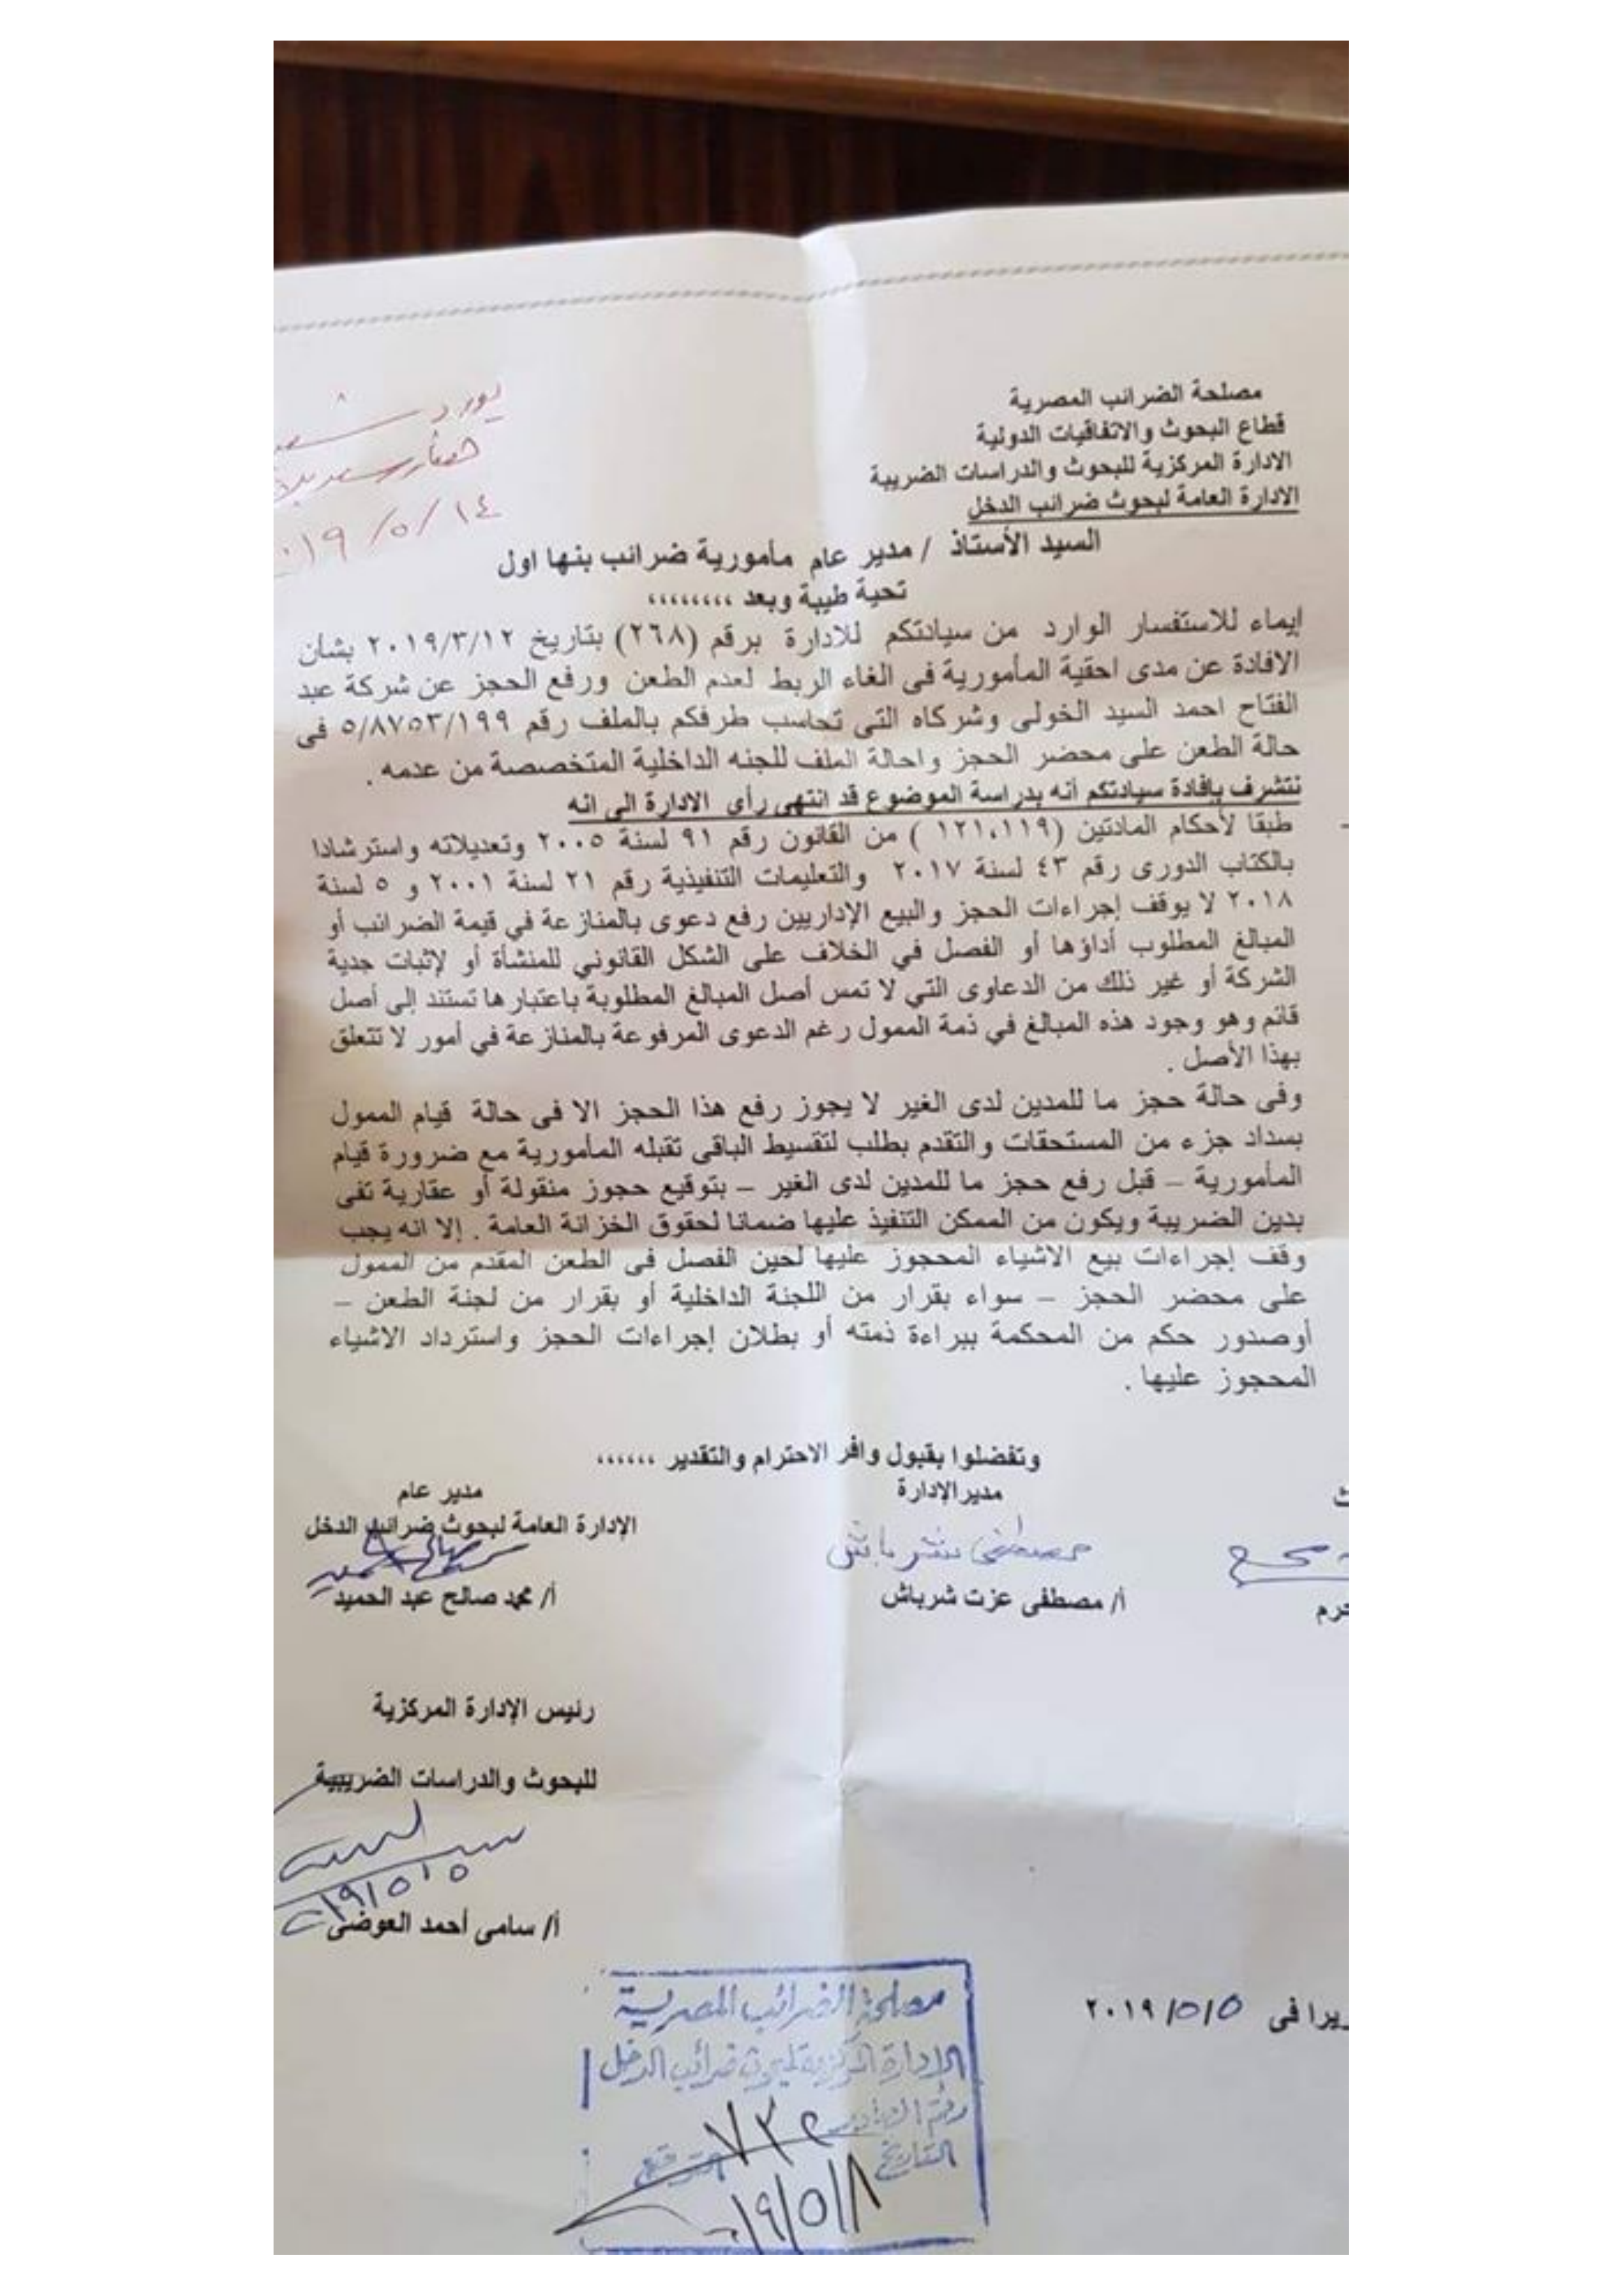 مصلحة الضرائب المصرية
قطاع البحوث والاتفاقيات الدولية
الادارة المركزية للبحوث والدراسات الضريبة
الادارة العامة لبحوث ضرائب الدخل
٢٠١٩/٥/١٤
السيد الأستاذ / مدير عام مأمورية ضرائب بنها اول
تحية طيبة وبعد ،،،،،،،،
إيماء للاستفسار الوارد من سيادتكم للادارة برقم (٢٦٨) بتاريخ ٢٠١٩/٣/١٢ بشأن
الافادة عن مدى احقية المأمورية فى الغاء الربط لعدم الطعن ورفع الحجز عن شركة عبد
الفتاح احمد السيد الخولى وشركاه التى تحاسب طرفكم بالملف رقم ٥/٨٧٥٣/١٩٩ فى
حالة الطعن على محضر الحجز واحالة الملف للجنه الداخلية المتخصصة من عدمه .
نتشرف بإفادة سيادتكم أنه بدراسة الموضوع قد انتهى رأى الادارة الى انه
طبقا لأحكام المادتين (١٢١،١١٩ ) من القانون رقم ٩١ لسنة ٢٠٠٥ وتعديلاته واسترشادا
بالكتاب الدورى رقم ٤٣ لسنة ٢٠١٧ والتعليمات التنفيذية رقم ٢١ لسنة ٢٠٠١ و ٥ لسنة
٢٠١٨ لا يوقف إجراءات الحجز والبيع الإداريين رفع دعوى بالمنازعة في قيمة الضرائب أو
المبالغ المطلوب أداؤها أو الفصل في الخلاف على الشكل القانوني للمنشأة أو لإثبات جدية
الشركة أو غير ذلك من الدعاوى التي لا تمس أصل المبالغ المطلوبة باعتبارها تستند إلى أصل
قائم وهو وجود هذه المبالغ في ذمة الممول رغم الدعوى المرفوعة بالمنازعة في أمور لا تتعلق
بهذا الأصل .
وفى حالة حجز ما للمدين لدى الغير لا يجوز رفع هذا الحجز الا فى حالة قيام الممول
بسداد جزء من المستحقات والتقدم بطلب لتقسيط الباقى تقبله المأمورية مع ضرورة قيام
المأمورية – قبل رفع حجز ما للمدين لدى الغير – بتوقيع حجوز منقولة أو عقارية تفى
بدين الضريبة ويكون من الممكن التنفيذ عليها ضمانا لحقوق الخزانة العامة . إلا انه يجب
وقف إجراءات بيع الاشياء المحجوز عليها لحين الفصل فى الطعن المقدم من الممول
على محضر الحجز – سواء بقرار من اللجنة الداخلية أو بقرار من لجنة الطعن –
أوصدور حكم من المحكمة ببراءة ذمته أو بطلان إجراءات الحجز واسترداد الاشياء
المحجوز عليها .
وتفضلوا بقبول وافر الاحترام والتقدير ،،،،،،
مديرالإدارة
مصطفى شرباش
أ/ مصطفى عزت شرباش
مدير عام
الإدارة العامة لبحوث ضرائب الدخل
أ/ محمد صالح عبد الحميد
رئيس الإدارة المركزية
للبحوث والدراسات الضريبية
أ/ سامى أحمد العوضى
يرا فى ٢٠١٩/٥/٥
مصلحة الضرائب المصرية
الإدارة المركزية لبحوث ضرائب الدخل
التاريخ
التوقيع